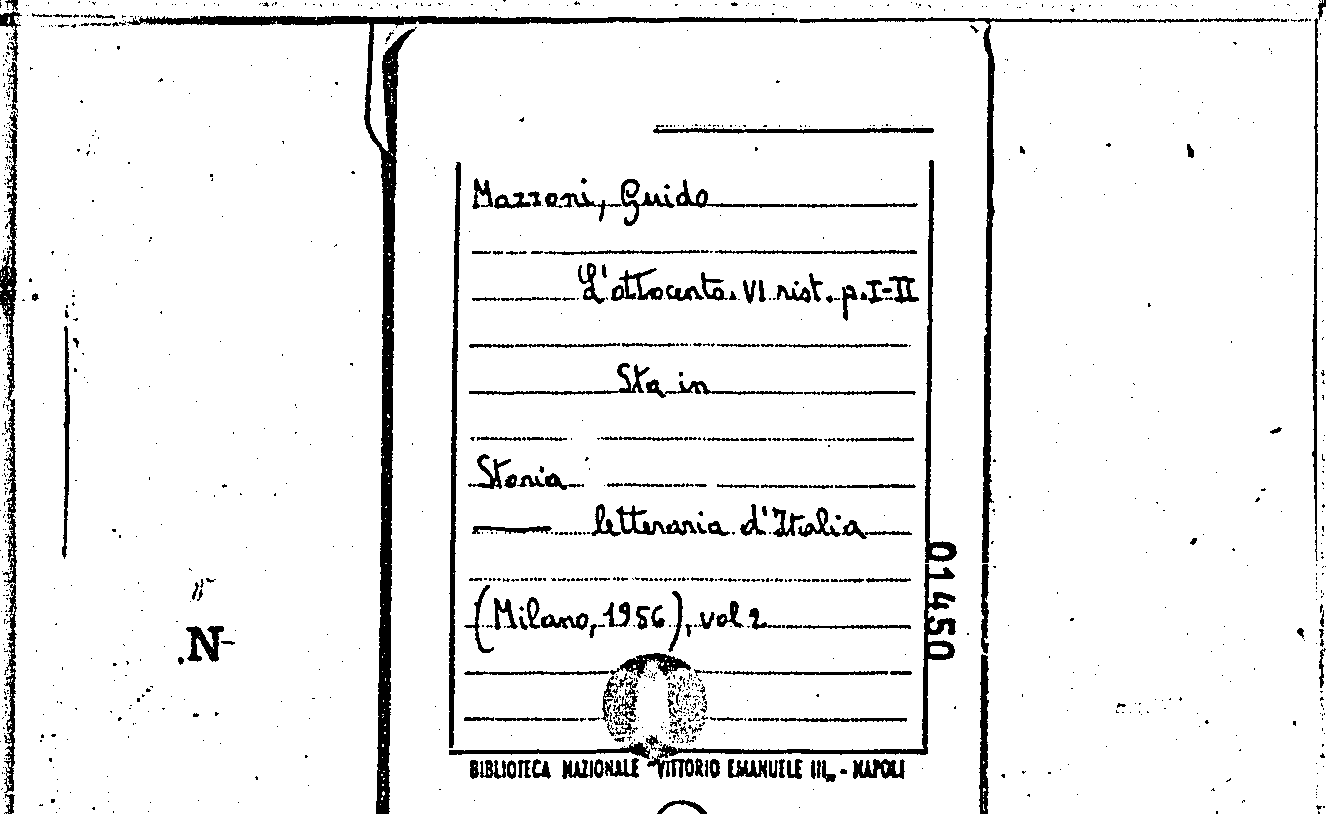 Mazzoni, Guido
L'ottocento. VI rist. p. I-II
Sta in
Storia
letteraria d'Italia
(Milano, 1956), vol 2
01450
N
BIBLIOTECA NAZIONALE "VITTORIO EMANUELE III" - NAPOLI